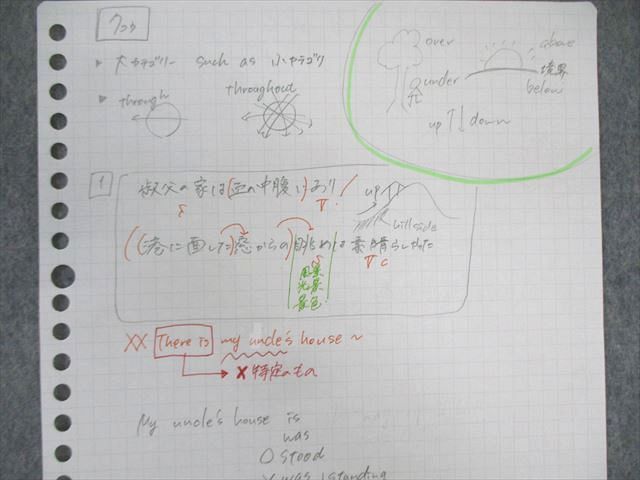 大カテゴリー such as 小カテゴリ
through
throughout
over
under
above
境界
below
up down
1
叔父の家は丘の中腹にあり
S V
up
hillside
(港に面した)窓からの)眺めは素晴らしかった
S V C
風景
光景
景色
XX There is my uncle's house ~
→ × 特定のもの
My uncle's house is
was
O stood
X was standing